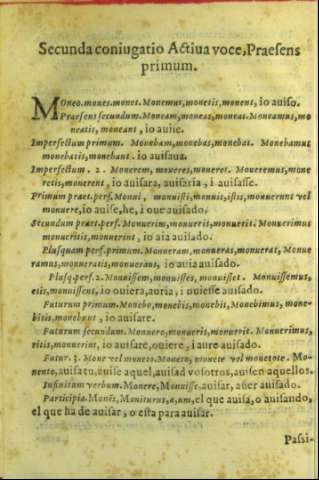 Secunda coniugatio Actiua voce, Praesens
primum.
MOneo. mones. monet. Monemus, monetis, monent, io auiso.
Praesens secundum. Moneam, moneas, moneat. Moneamus, mo
neatis, moneant, io auise.
Imperfectum primum. Monebam, monebas, monebat. Monebamus
monebatis, monebant. io auisaua.
Imperfectum. 2. Monerem, moneres, moneret. Moneremus, mone
retis, monerent, io auisara, auisaria, i auisasse.
Primum praet. perf. Monui, monuisti, monuit, istis, monuerunt vel
monuere, io auise, he, i oue auisado.
Secundum praet. perf. Monuerim, monueris, monuerit. Monuerimus
monueritis, monuerint, io aia auisado.
Plusquam perf. primum. Monueram, monueras, monuerat, Monue
ramus, monueratis, monuerant, io auia auisado.
Plusq. perf. 2. Monuissem, monuisses, monuisset. Monuissemus,
etis, monuissent, io ouiera, auria, i ouiesse auisado.
Futurum primum. Monebo, monebis, monebit, Monebimus, mone-
bitis, monebunt, io auisare.
Futurum secundum. Monuero, monueris, monuerit. Monuerimus,
ritis, monuerint, io auisare, ouiere, i aure auisado.
Futur. 3. Mone vel moneto. Moneto, monete vel monetote. Mo-
nento, auisa tu, auise aquel, auisad vosotros, auisen aquellos.
Infinitum verbum. Monere, Monuisse. auisar, auer auisado.
Participia. Monēs, Moniturus, a, um, el que auisa, o auisando,
el que ha de auisar, o esta para auisar.
Passi-